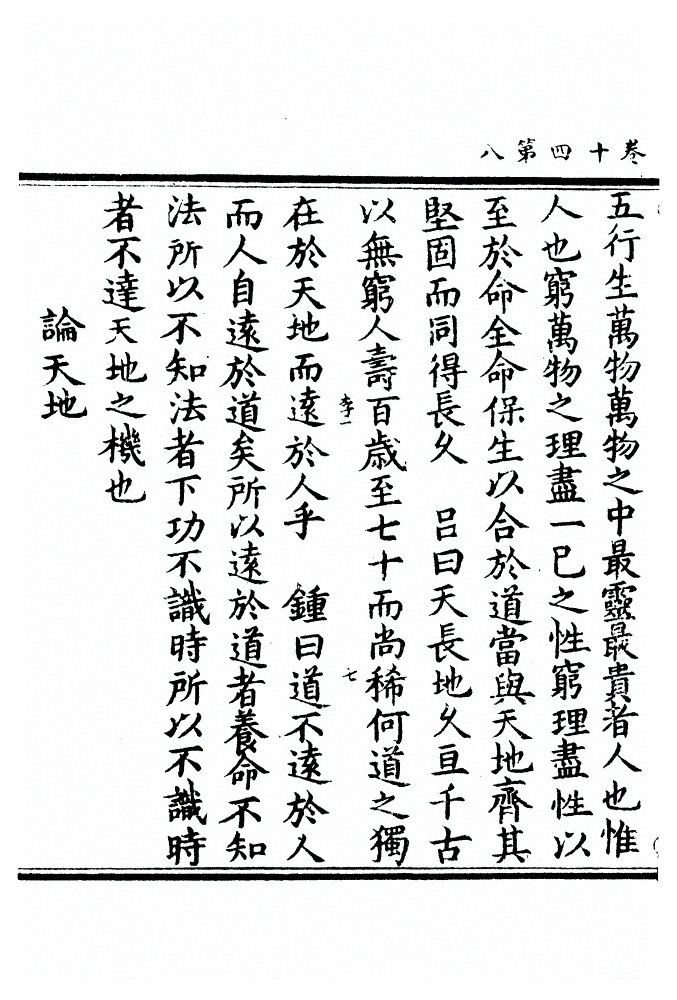 卷十四第八
五行生萬物萬物之中最靈最貴者人也惟
人也窮萬物之理盡一已之性窮理盡性以
至於命全命保生以合於道當與天地齊其
堅固而同得長久　呂曰天長地久亘千古
以無窮人壽百歳至七十而尚稀何道之獨
李一　七
在於天地而遠於人乎　鍾曰道不遠於人
而人自遠於道矣所以遠於道者養命不知
法所以不知法者下功不識時所以不識時
者不達天地之機也
論天地